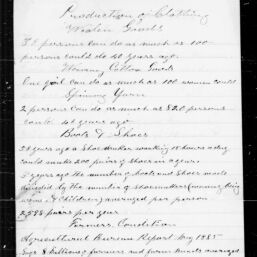 Production of Clothing
Woolen Goods
3 8 persons can do as much as 100
persons could do 40 years ago.
Weaving Cotton Goods
One girl can do as much as 100 women could
Spinning Yarn
2 persons can do as much as 820 persons
could 40 years ago
Boots & Shoes
25 years ago a Shoemaker working 15 hours a day
could make 200 pairs of shoes in a year
5 years ago the number of boots and shoes made
divided by the number of shoemakers (
women & Children) averaged per person
2,598 pairs per year
Farmers Condition
Agricultural Bureau Report May 1885
8 millions farmers and farm hands averaged